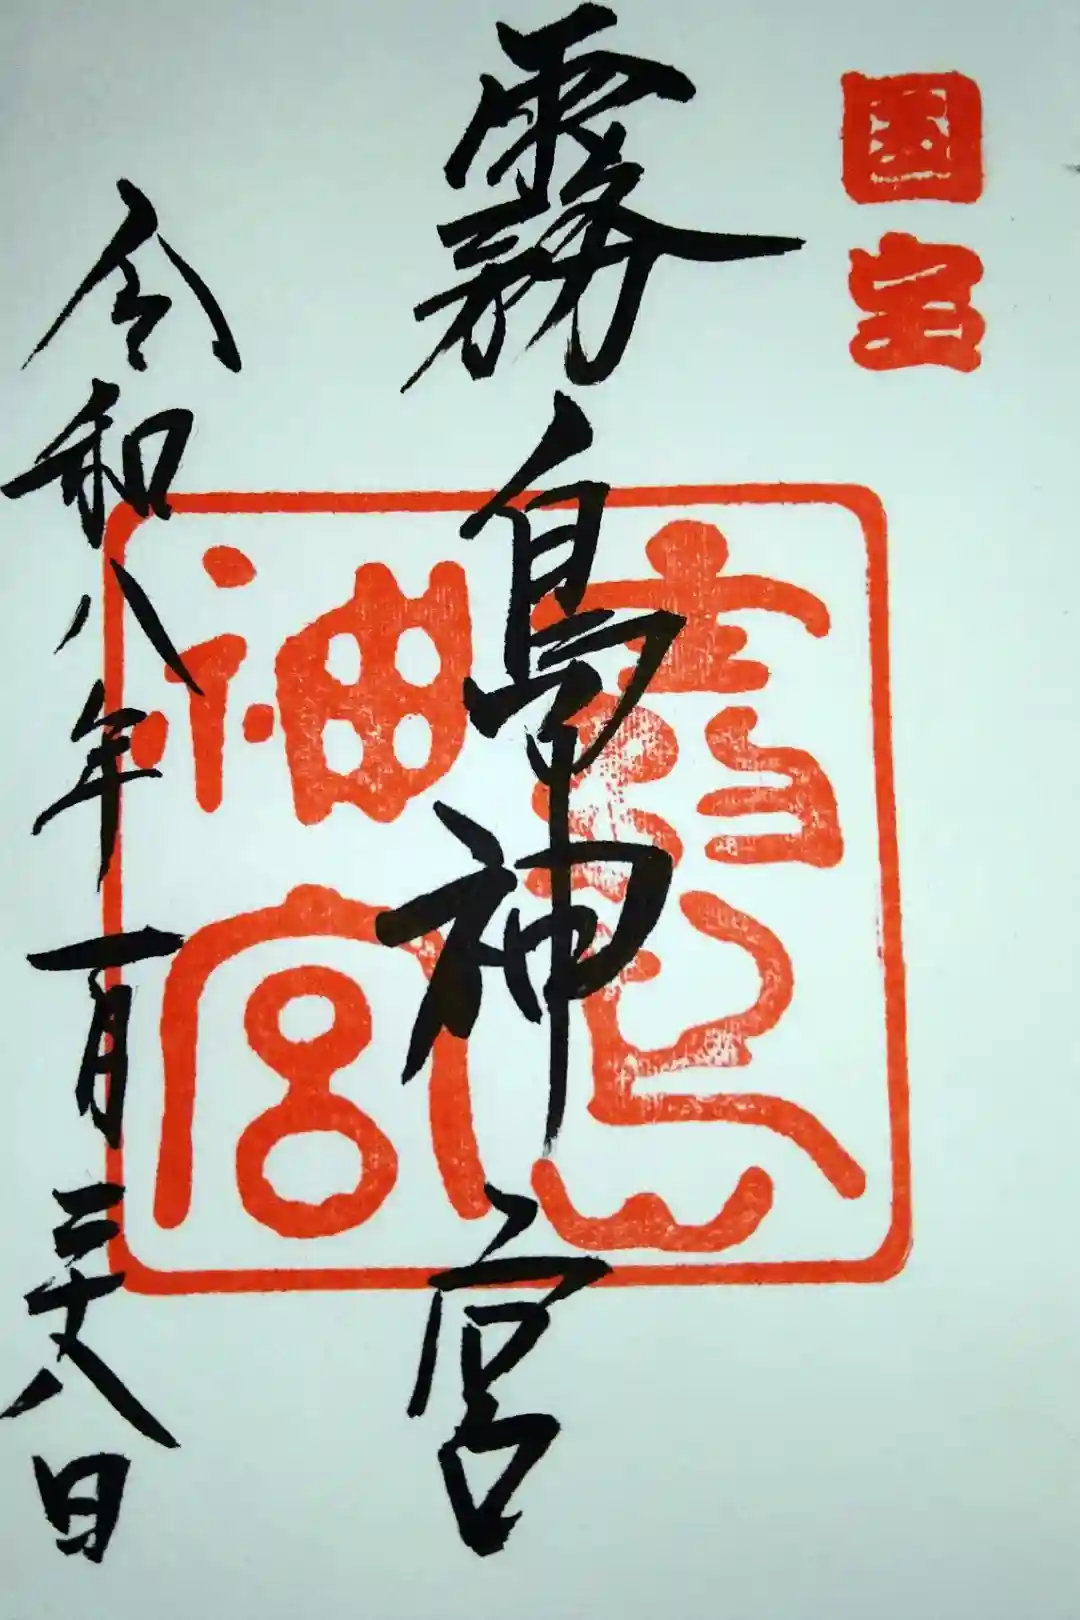 国宝
霧島神宮
霧島
神宮
令和八年一月二十八日